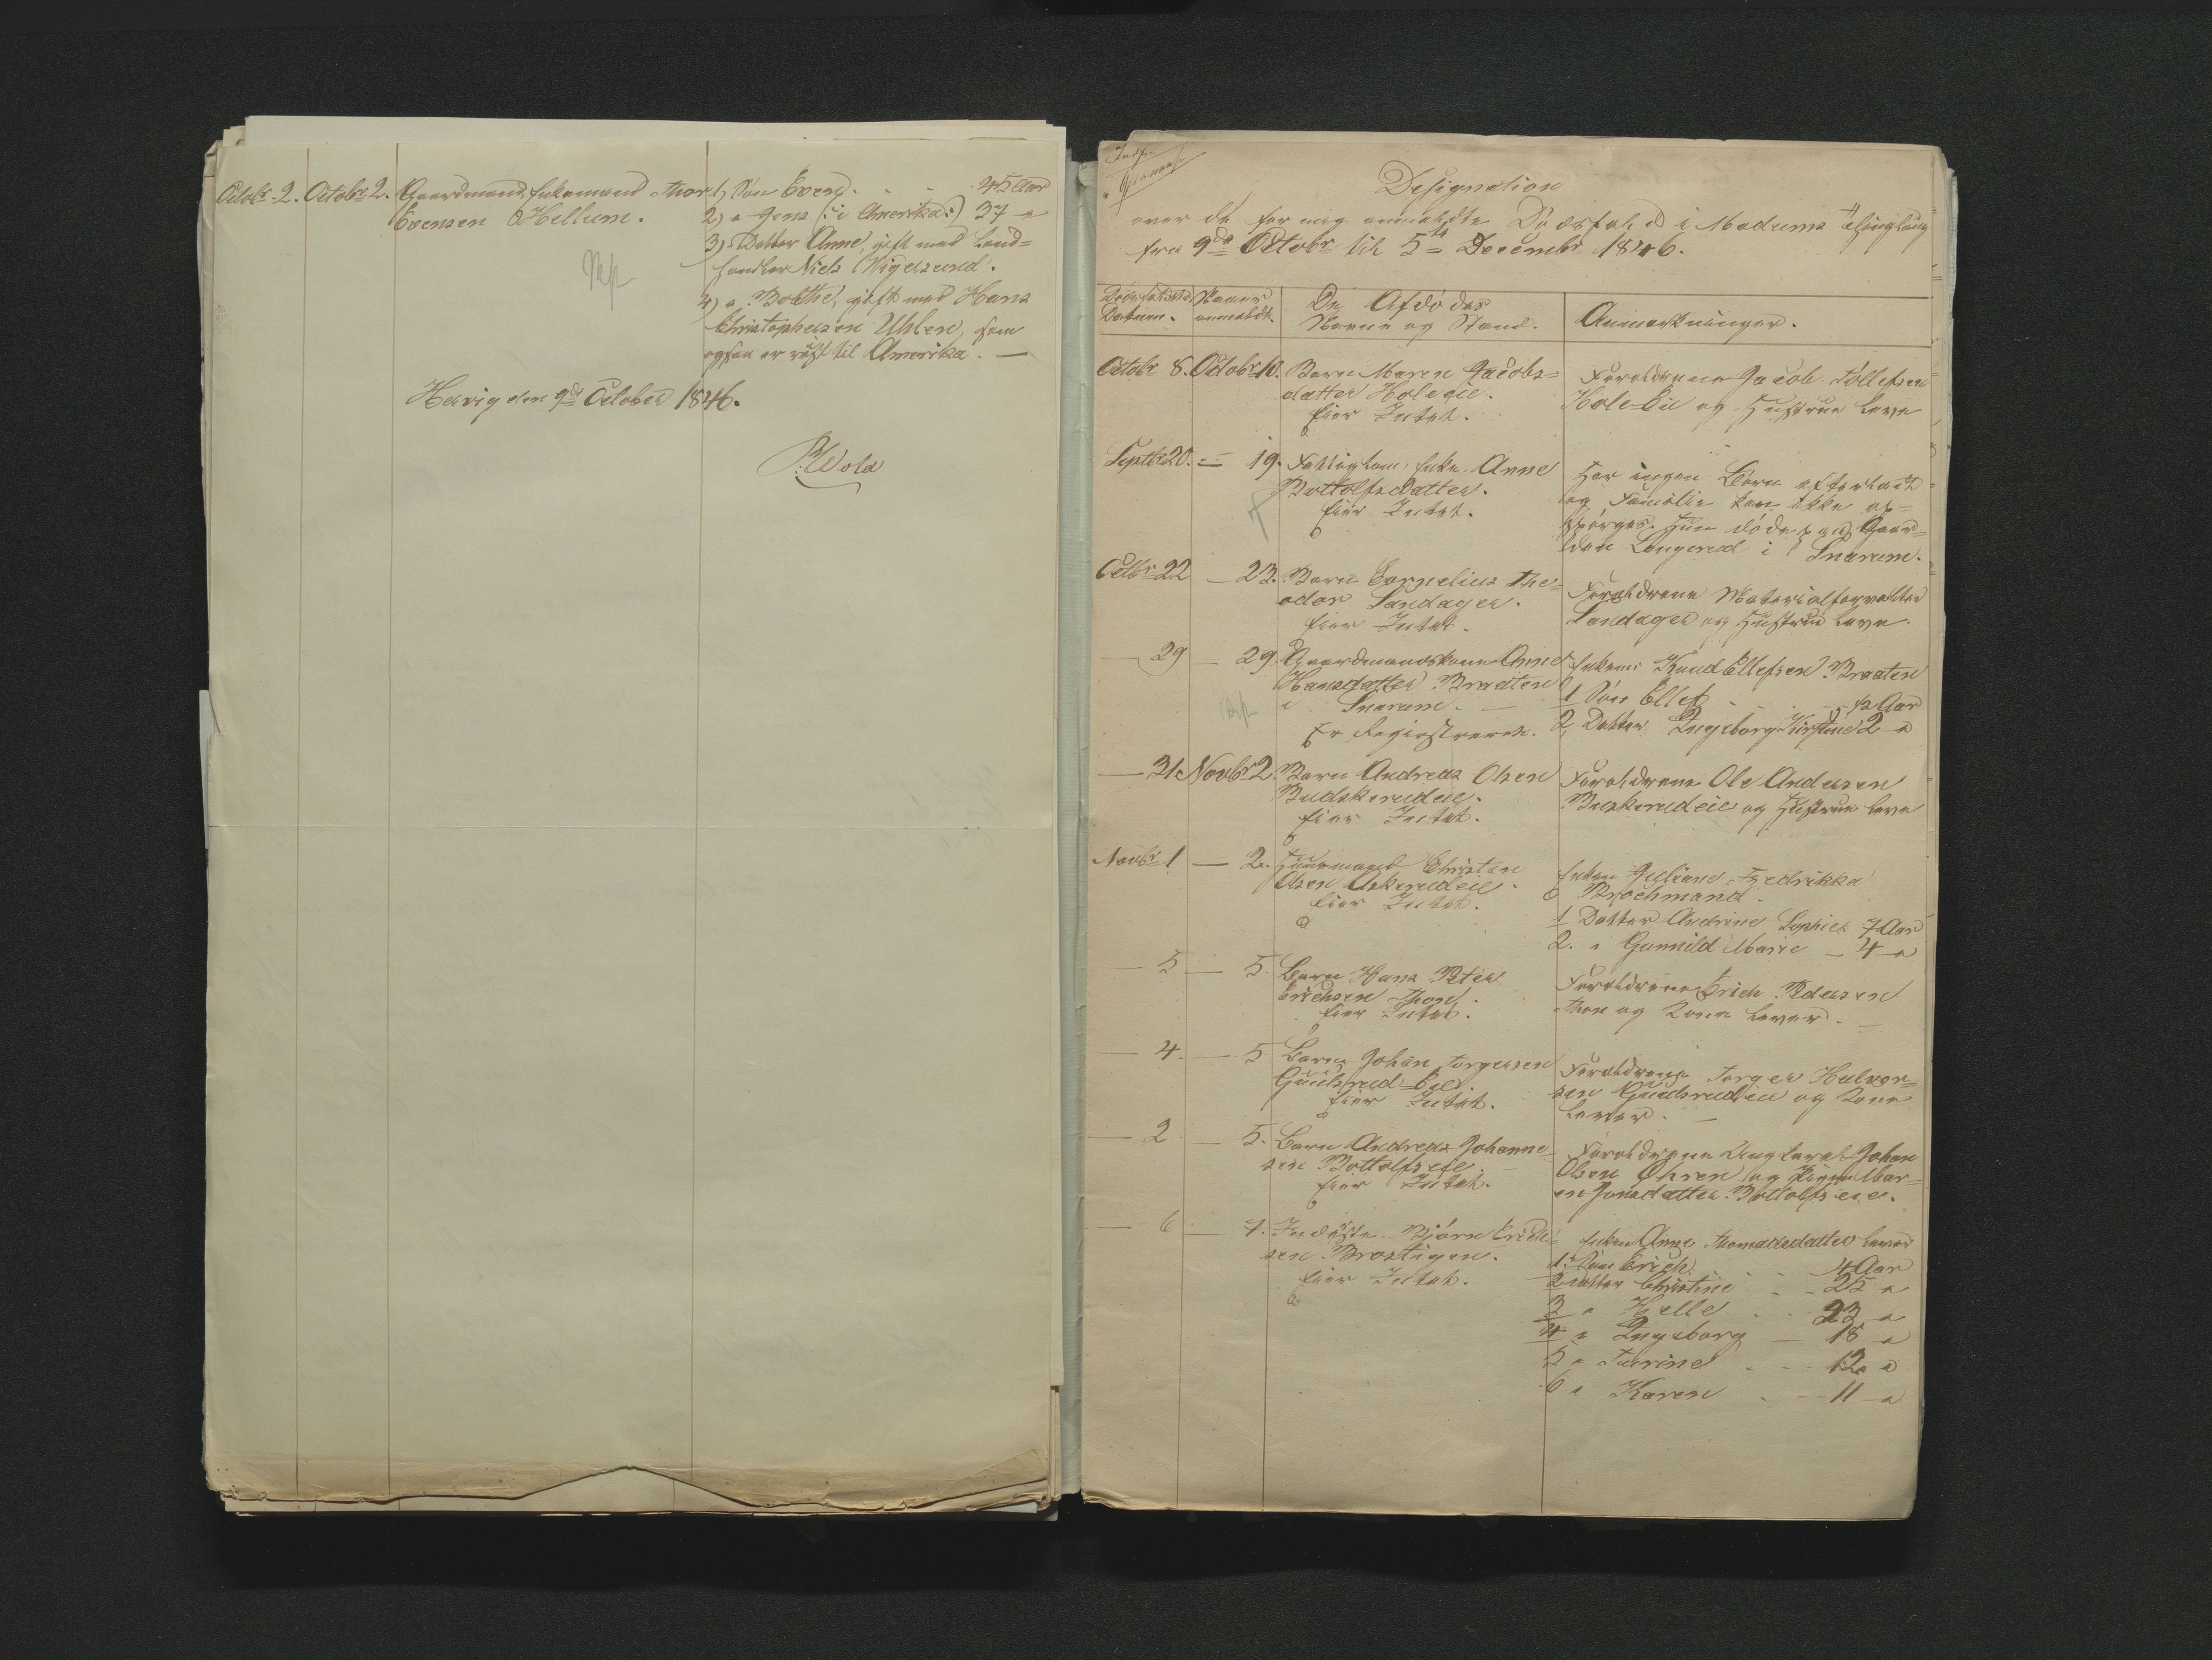 Octobr 2. Octobr 2. Gaardmand, Enkemand Thor
Evensen Hellum.
1) Søn Even . . . 45 Aar
2) " Jens (: i Amerika :) 37 "
3) Datter Anne, gift med Land=
handler Niels Vigersund.
4) " Bolthe, gift med Hans
Christophersen Uhlen, som
ogsaa er reist til Amerika. —
Hærvig den 9de October 1846.
Wold
Designation
over de for mig anmeldte Dødsfald i Modums Thinglaug
fra 9de Octobr til 5te Decembr 1846.
Dødsfaldets
Datum.
Naar
anmeldt.
De Afdødes
Navne og Stand.
Anmærkninger.
Octobr 8. Octobr 10. Barn Maren Jacobs=
datter Holeeie.
Eier Intet.
Forældrene Jacob Tollefsen
Hole Eie og Hustrue leve
Septbr 20. = 19. Fattiglem, Enke Anne
Bottolfsdatter.
Eier Intet.
Har ingen Børn efterladt
og Familie kan ikke op=
spørges. Hun døde paa Gaar=
den Langerud i Snarum.
Octbr 22 — 23. Barn Cornelius The=
odor Sandager.
Eier Intet.
Forældrene Materialforvalter
Sandager og Hustrue leve.
— 29 — 29. Gaardmandskone Anne
Hansdatter Braaten
i Snarum. —
Er Registreret.
Enkem: Knud Ellefsen Braaten
1 Søn Ellef
2, Datter Ingeborg Kirstine 2 "
— 31 Novbr 2. Barn Andreas Olsen
Budskerudeie.
Eier Intet.
Forældrene Ole Andersen
Buskerudeie og Hustrue leve
Novbr 1 — 2. Huusmand Christian
Olsen Askerudeie.
Eier Intet.
Enken Juliane Fredrikke
Brochmand.
1 Datter Andrine Sophie 7 Aar
2. " Gunnild Marie — 4 "
— 5 — 5. Barn Hans Peter
Erichsen Thon.
Eier Intet.
Forældrene Erich Pedersen
Thon og Kone lever. —
— 4. — 5 Barn Johan Torgersen
Guulsrud Eie.
Eier Intet.
Forældrene Torger Halvor=
sen Guulsrudeie og Kone
lever. —
— 2 — 5. Barn Andreas Johanne=
sen Bottolfseie. —
Eier Intet.
Forældrene Ungkarl Johan
Olsen Øhren og Pigen Mar=
en Jonsdatter Bottolfseie.
— 6 — 7. Inderste Bjørn Erich=
sen Brostigen.
Eier Intet.
Enken Anne Thomasdatter lever
1. Søn Erich
2 Datter Christine . . 25 "
3 " Helle . . 23 "
4 " Ingeborg — 18 "
5 " Turine . . 12 "
6 " Karen . . 11 "